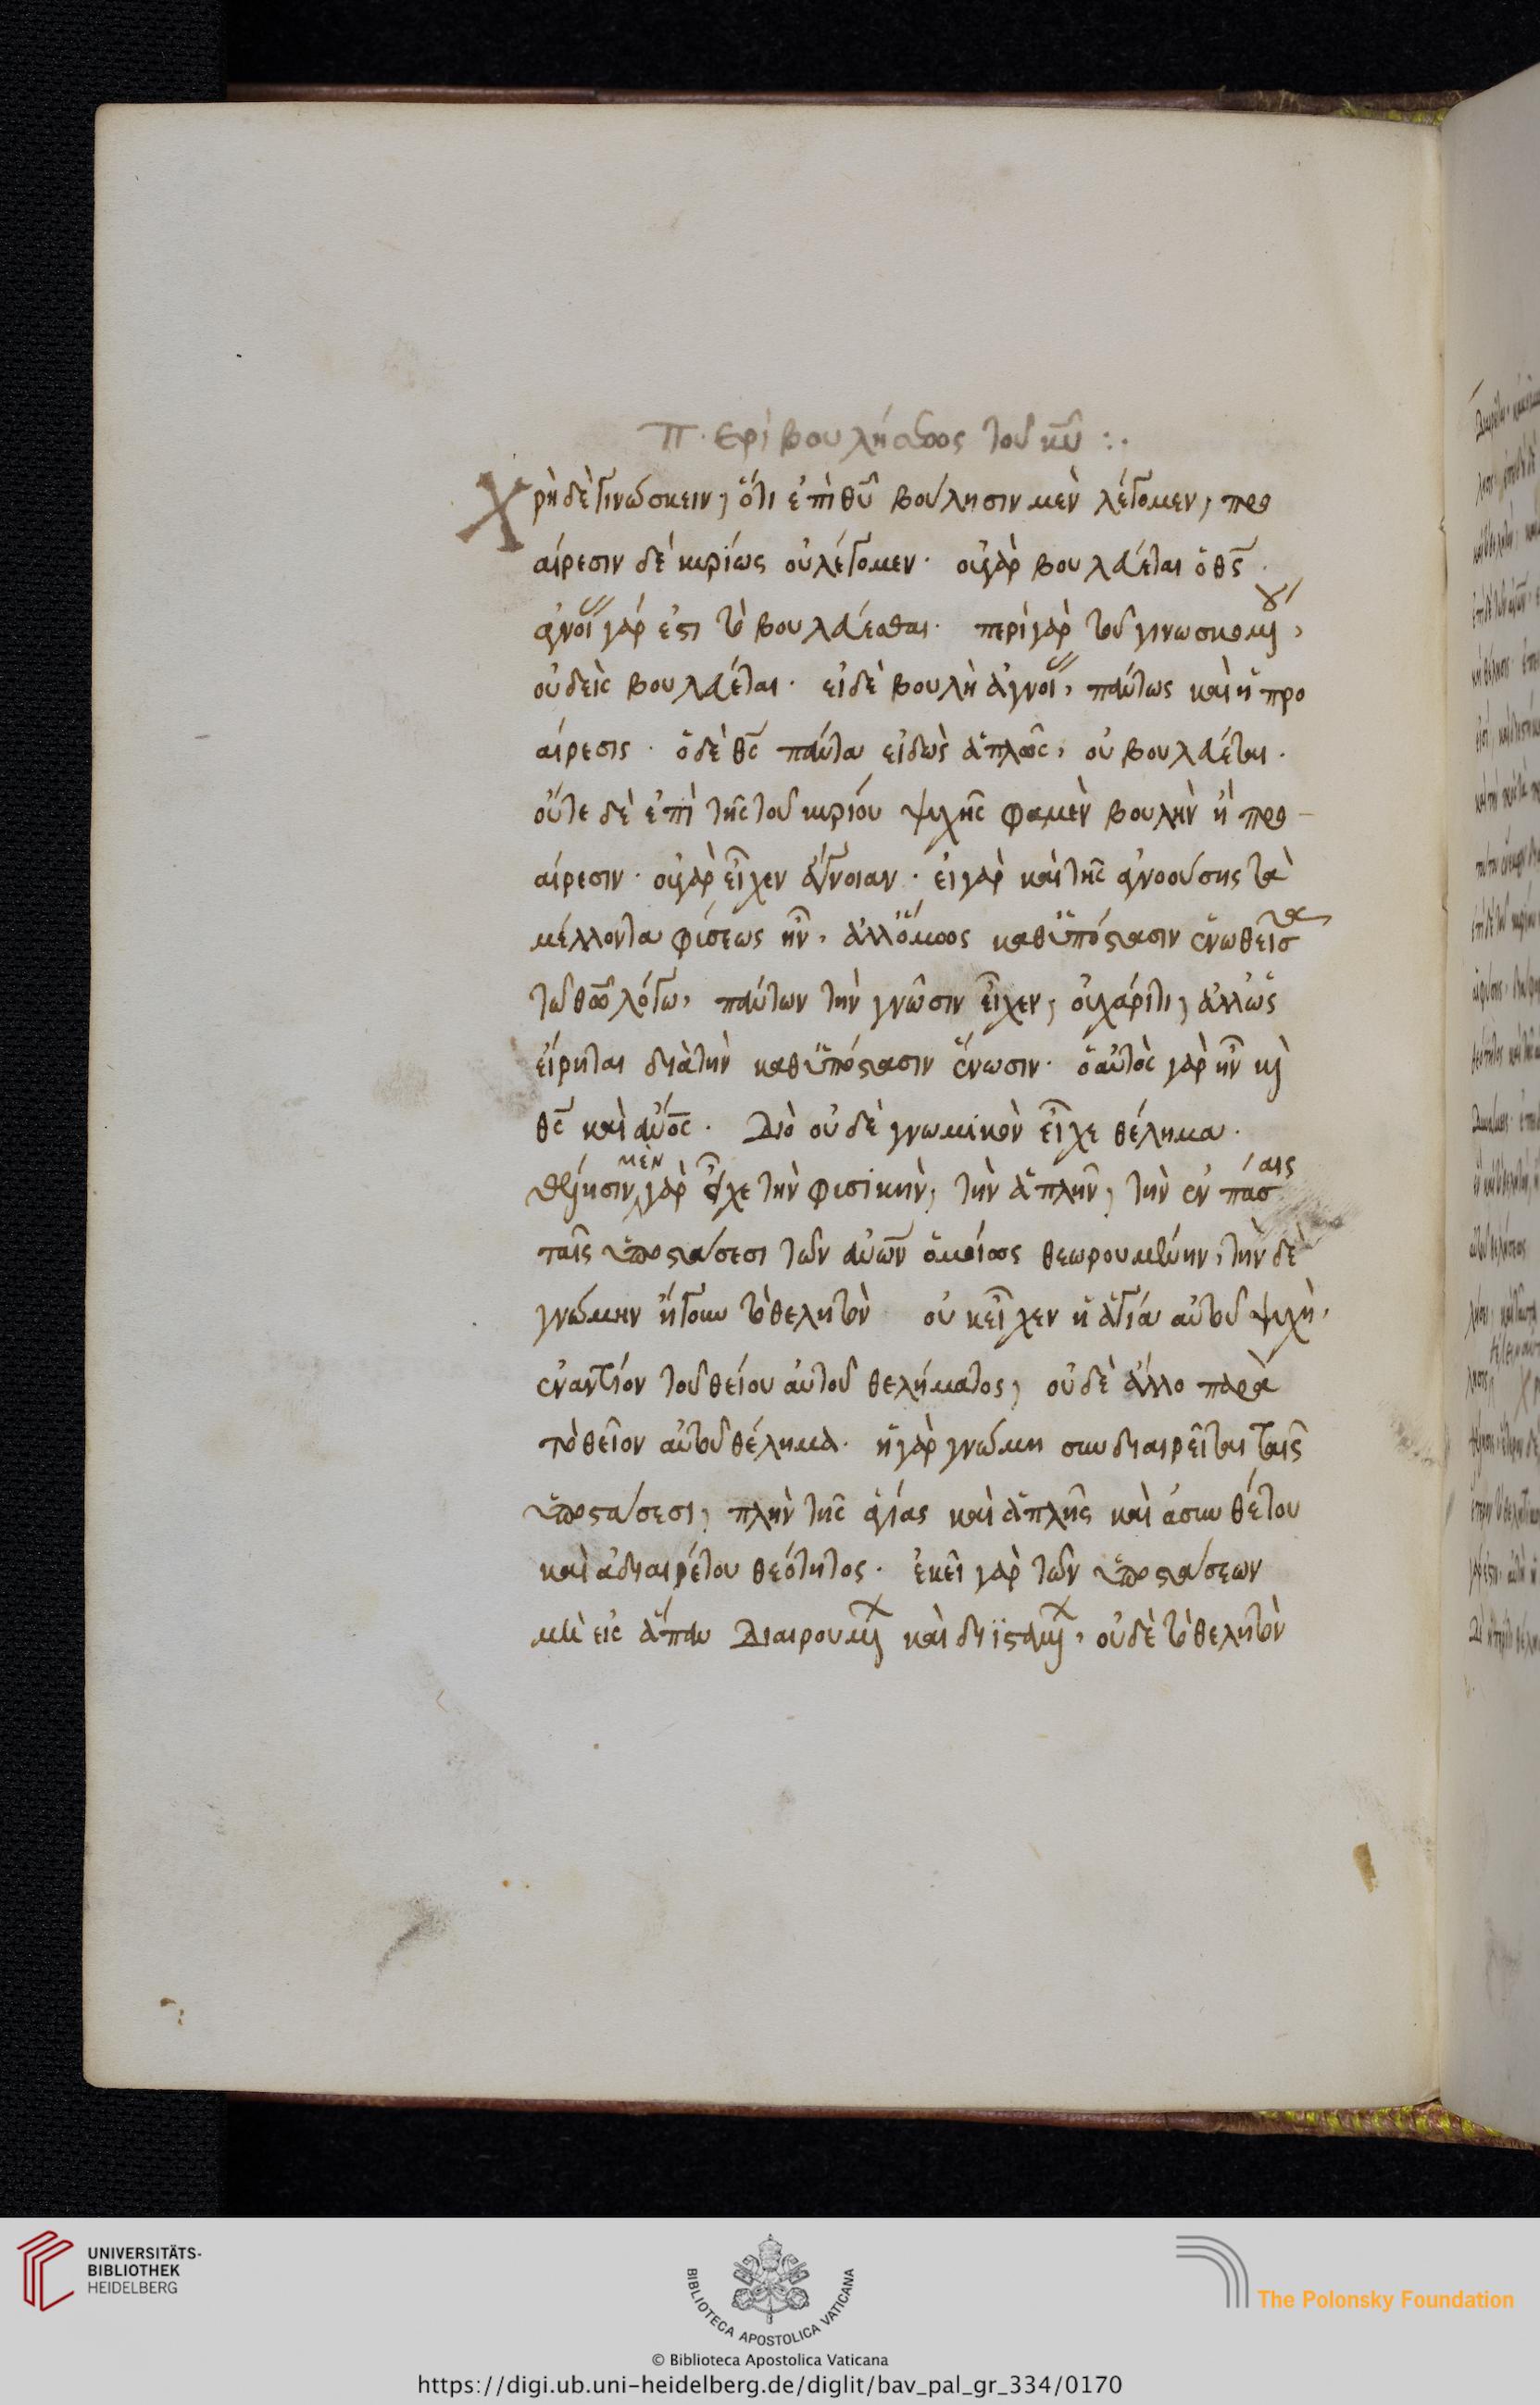 Περὶ βουλήσεως τοῦ κυ̅ :·
Χρὴ δὲ γινώσκειν, ὅτι ἐπὶ θυ̅ βούλησιν μὲν λέγομεν, προ
αίρεσιν δέ κυρίως οὐ λέγομεν· οὐ γὰρ βουλεύεται ὁ θς̅·
ἀγνοίας γάρ ἐστι τὸ βουλεύεσθαι· περὶ γὰρ τοῦ γινωσκομένου,
οὐδεὶς βουλεύεται· εἰ δὲ βουλὴ ἀγνοίας, πάντως καὶ ἡ προ
αίρεσις· ὁ δὲ θς̅ πάντα εἰδὼς ἁπλῶς, οὐ βουλεύεται·
οὔτε δὲ ἐπὶ τῆς τοῦ κυρίου ψυχῆς φαμὲν βουλὴν ἢ προ-
αίρεσιν· οὐ γὰρ εἶχεν ἄγνοιαν· εἰ γὰρ καὶ τῆς ἀγνοούσης τὰ
μέλλοντα φύσεως ἦν, ἀλλ' ὅμως καθ' ὑπόστασιν ἑνωθεῖσα
τῷ θεῷ λόγῳ, πάντων τὴν γνῶσιν εἶχεν, οὐ χάριτι, ἀλλ' ὡς
εἴρηται διὰ τὴν καθ' ὑπόστασιν ἕνωσιν· ὁ αὐτὸς γὰρ ἦν καὶ
θς̅ καὶ ἄνο̅ς· Διὸ οὐδὲ γνωμικὸν εἶχε θέλημα·
Θέλησιν μὲν γὰρ εἶχε τὴν φυσικὴν, τὴν ἁπλῆν, τὴν ἐν πάσαις
ταῖς ὑποστάσεσι τῶν ἀνω̅ν ὁμοίως θεωρουμένην, τὴν δὲ
γνώμην ἤγουν τὸ θελητὸν οὐκ εἶχεν ἡ ἁγία αὐτοῦ ψυχὴ,
ἐναντίον τοῦ θείου αὐτοῦ θελήματος, οὐδὲ ἄλλο παρὰ
τὸ θεῖον αὐτοῦ θέλημα· ἡ γὰρ γνώμη συνδιαιρεῖται ταῖς
ὑποστάσεσι, πλὴν τῆς ἁγίας καὶ ἁπλῆς καὶ ἀσυνθέτου
καὶ ἀδιαιρέτου θεότητος· ἐκεῖ γὰρ τῶν ὑποστάσεων
μὴ εἰς ἅπαν διαιρουμένων καὶ διϊσταμένων, οὐδὲ τὸ θελητὸν
UNIVERSITÄTS-
BIBLIOTHEK
HEIDELBERG
BIBLIOTECA APOSTOLICA VATICANA
The Polonsky Foundation
© Biblioteca Apostolica Vaticana
https://digi.ub.uni-heidelberg.de/diglit/bav_pal_gr_334/0170